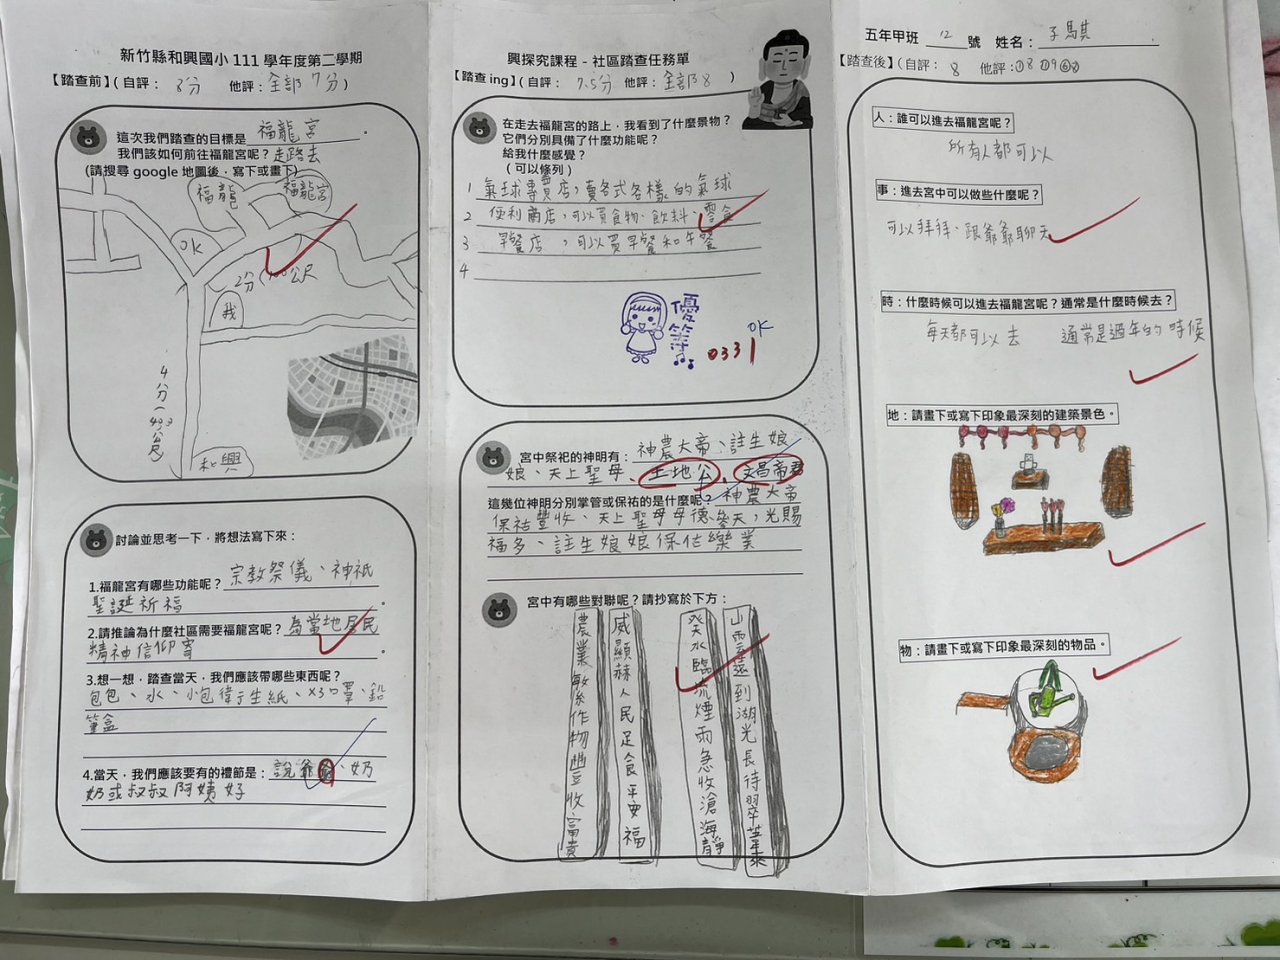 新竹縣和興國小 111 學年度第二學期
【踏查前】( 自評： 8分 他評：全部 7分 )
這次我們踏查的目標是 福龍宮 。
我們該如何前往福龍宮呢？走路去
(請搜尋 google 地圖後，寫下或畫下)
福龍
福龍宮
OK
2分
公尺
我
4分
公尺
和興
討論並思考一下，將想法寫下來：
1.福龍宮有哪些功能呢？ 宗教祭儀、神祇
聖誕祈福 。
2.請推論為什麼社區需要福龍宮呢？ 為當地居民
精神信仰寄 。
3.想一想，踏查當天，我們應該帶哪些東西呢？
包包、水、小包衛生紙、×3口罩、鉛
筆盒
4.當天，我們應該要有的禮節是：說爺爺、奶
奶或叔叔阿姨好
興探究課程 - 社區踏查任務單
【踏查 ing】( 自評： 7.5分 他評：全部 8 )
在走去福龍宮的路上，我看到了什麼景物？
它們分別具備了什麼功能呢？
給我什麼感覺？
( 可以條列 )
1 氣球專賣店，賣各式各樣的氣球
2 便利商店，可以買食物、飲料、零食
3 早餐店，可以買早餐和午餐
4
優等
OK
0331
宮中祭祀的神明有：神農大帝、註生娘
娘、天上聖母、土地公、文昌帝君
這幾位神明分別掌管或保祐的是什麼呢？神農大帝
保祐豐收、天上聖母母德參天，光賜
福多、註生娘娘保佑樂業
宮中有哪些對聯呢？請抄寫於下方：
農業敏系作物豐收富貴
威顯赫人民足食平安福
癸水臨流煙雨急收滄海靜
山雲遠到湖光長待翠華來
五年甲班 12 號 姓名： 子騏 .
【踏查後】( 自評： 8 他評：①8 ②9 ⑥8
人：誰可以進去福龍宮呢？
所有人都可以
事：進去宮中可以做些什麼呢？
可以拜拜、跟爺爺聊天
時：什麼時候可以進去福龍宮呢？通常是什麼時候去？
每天都可以去 通常是過年的時候
地：請畫下或寫下印象最深刻的建築景色。
物：請畫下或寫下印象最深刻的物品。